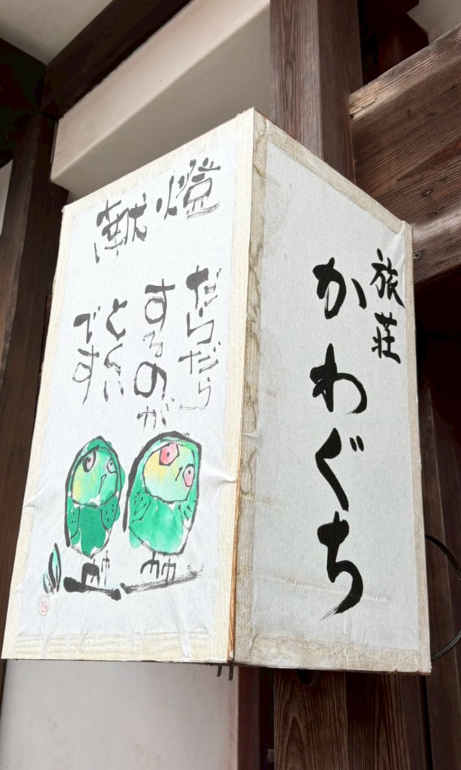 献燈
だらだら
するのが
とくい
です
旅荘
かわぐち